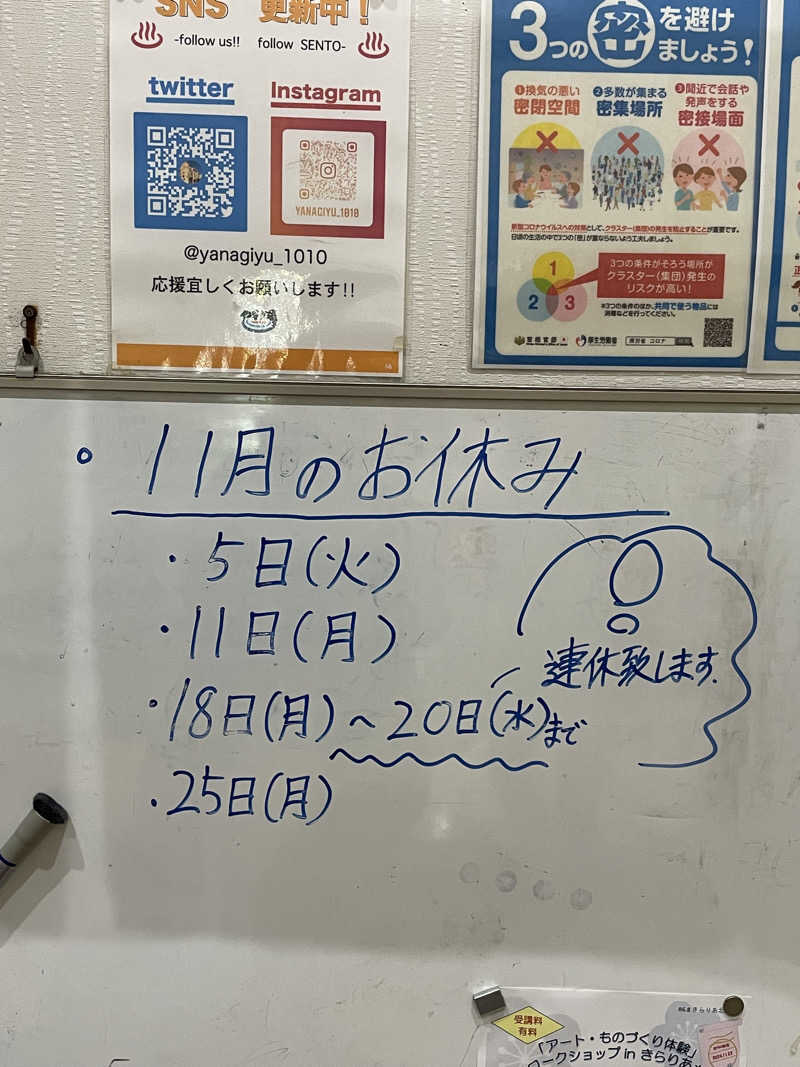 SNS 更新中！
-follow us!! follow SENTO-
twitter
Instagram
YANAGIYU_1010
@yanagiyu_1010
応援宜しくお願いします!!
3つの密を避けましょう！
①換気の悪い
密閉空間
②多数が集まる
密集場所
③間近で会話や
発声をする
密接場面
新型コロナウイルスへの対策として、クラスター（集団）の発生を防止することが重要です。
日頃の生活の中で3つの「密」が重ならないよう工夫しましょう。
1
2
3
3つの条件がそろう場所が
クラスター（集団）発生の
リスクが高い！
※3つの条件のほか、共同で使う物品には
消毒などを行ってください。
首相官邸
厚生労働省
厚労省 コロナ
。11月のお休み
・5日(火)
・11日(月)
・18日(月)〜20日(水)まで
連休致します.
・25日(月)
受講料
有料
「アート・ものづくり体験」
ワークショップ in きらりあ